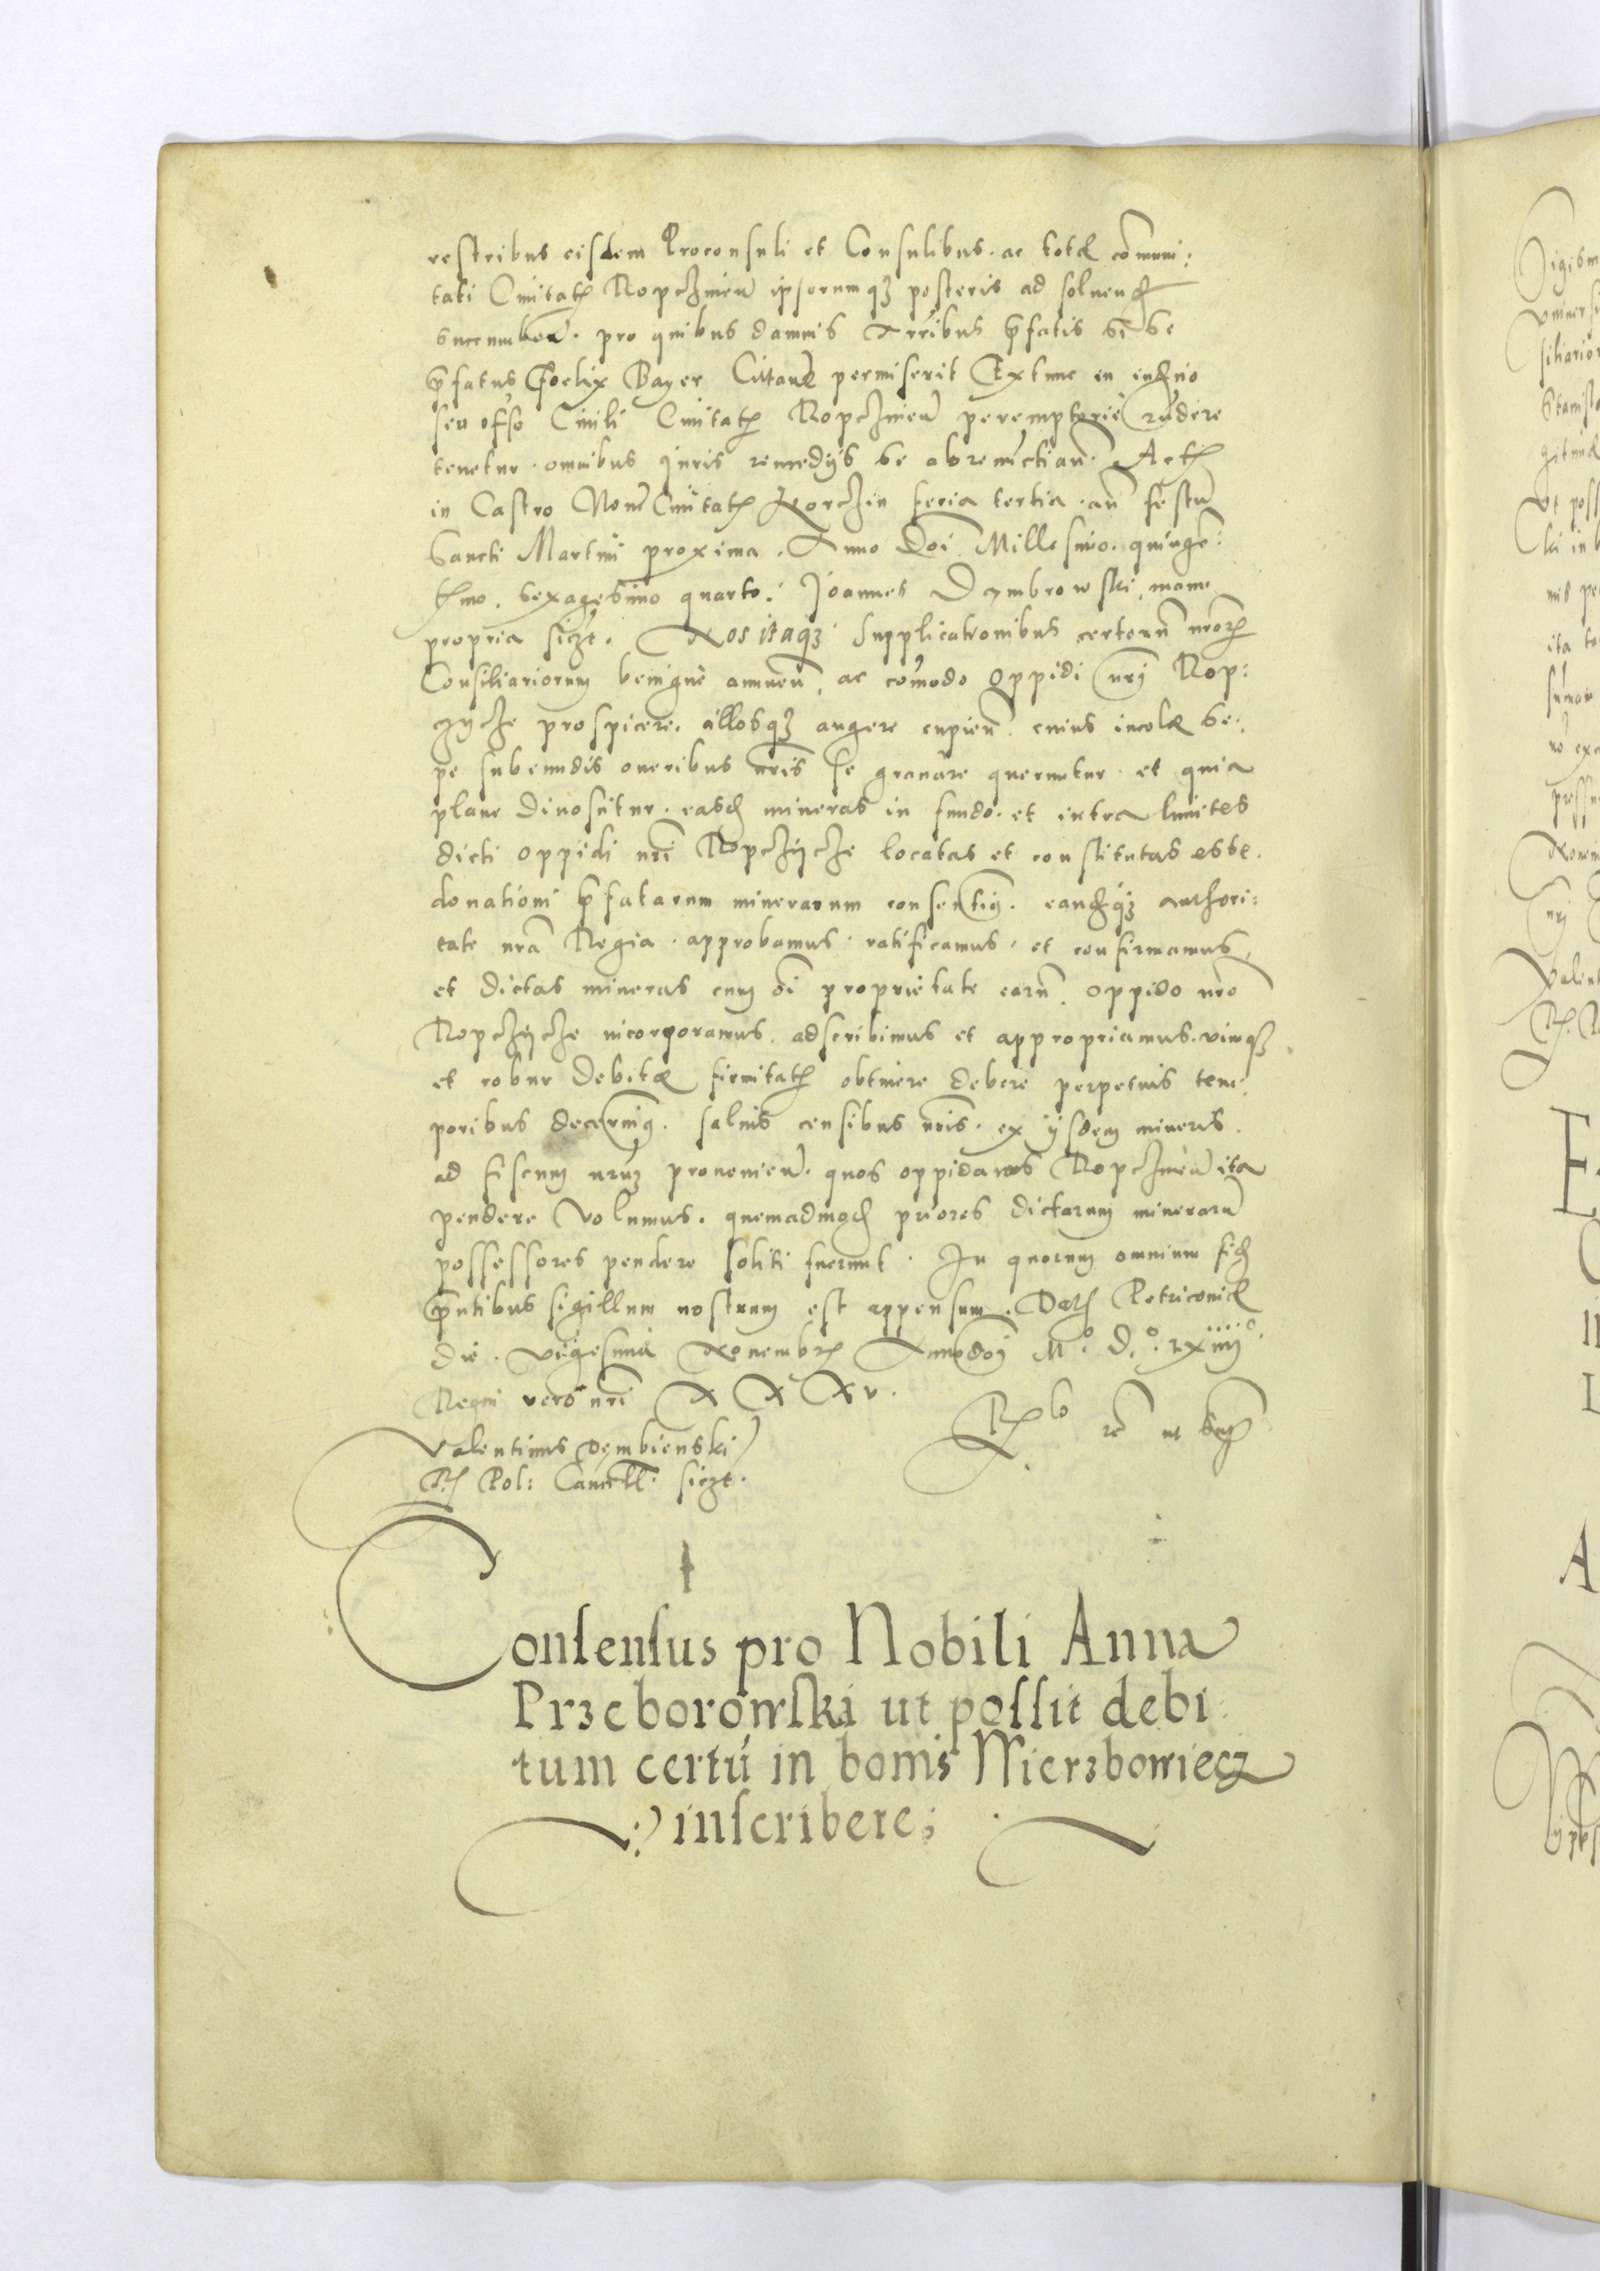 restribus eisdem Proconsuli et Consulibus. ac totæ com̄uni:
tati Ciuitatꝭ Ropcziñ ipsorumqꝫ posteris ad soluend
succumbeñ. pro quibus damnis terribus p̄fatis si se
p̄fatus Foelix Bayer Cittand permiserit Extunc in iudicio
seu offo Ciuili Ciuitatꝭ Ropczicen̄ peremptorie rn̄dere
tenetur. omnibus Juris remedijs se abrenuctiañ. Actꝭ
in Castro Noue Ciuitatꝭ Korczin feria tertia. añ festū
Sancti Martini proxima. Anno Dn̄i Millesimo. quinge:
tꝭmo. sexagesimo quarto: Joannes Dzymbrowski, manu
propria sszt. Nos itaqꝫ Supplicationibus certorū nrōꝝ
Consiliariorum benigne annueñ, ac com̄odo Oppidi nrj Rop:
czycze prospicere. illosqꝫ augere cupieñ. cuius incolæ se:
pe subeundis oneribus nrīs se grauare queruntur. et quia
plane dinositur. easd minera​s in fundo. et intra limites
dicti oppidi nrī Ropczÿcze locatas et constitutas esse.
donationi p̄fatarum minerarum consentiꝫ. eandqꝫ authori:
tate nrā Regia. approbamus. ratificamus. et confirmamus,
et dictas mineras cum om̄i proprietate earū. oppido nrō
Ropczÿcze incorporamus. adscribimus et appropriamus. vimqꝫ
et robur debitæ firmitatꝭ obtinere debere perpetuis tem:
poribus decerniꝫ. saluis censibus nrīs. ex ijsdem mineris.
ad fiscum nrūꝫ prouenieñ. quos oppidanos Ropcziceñ ita
pendere Volumus. quemadmod priores dictarum minerarū
possessores pendere soliti fuerunt. In quorum omnium fid
p̄ntibus sigillum nostrum est appensum. Datꝭ Petricouiæ
die. vigesima Nouembrꝭ Anno Dn̄j M.° D.° lxiiij°.
Regni vero nrī XXXV.
Valentinus Dembienski
R. Pol: Cancell. sszt.
Rlo re ut supꝭ
Consensus pro Nobili Anna
Przeborowski ut possit debi
tum certū in bonis Wierzbowiecz
inscribere;